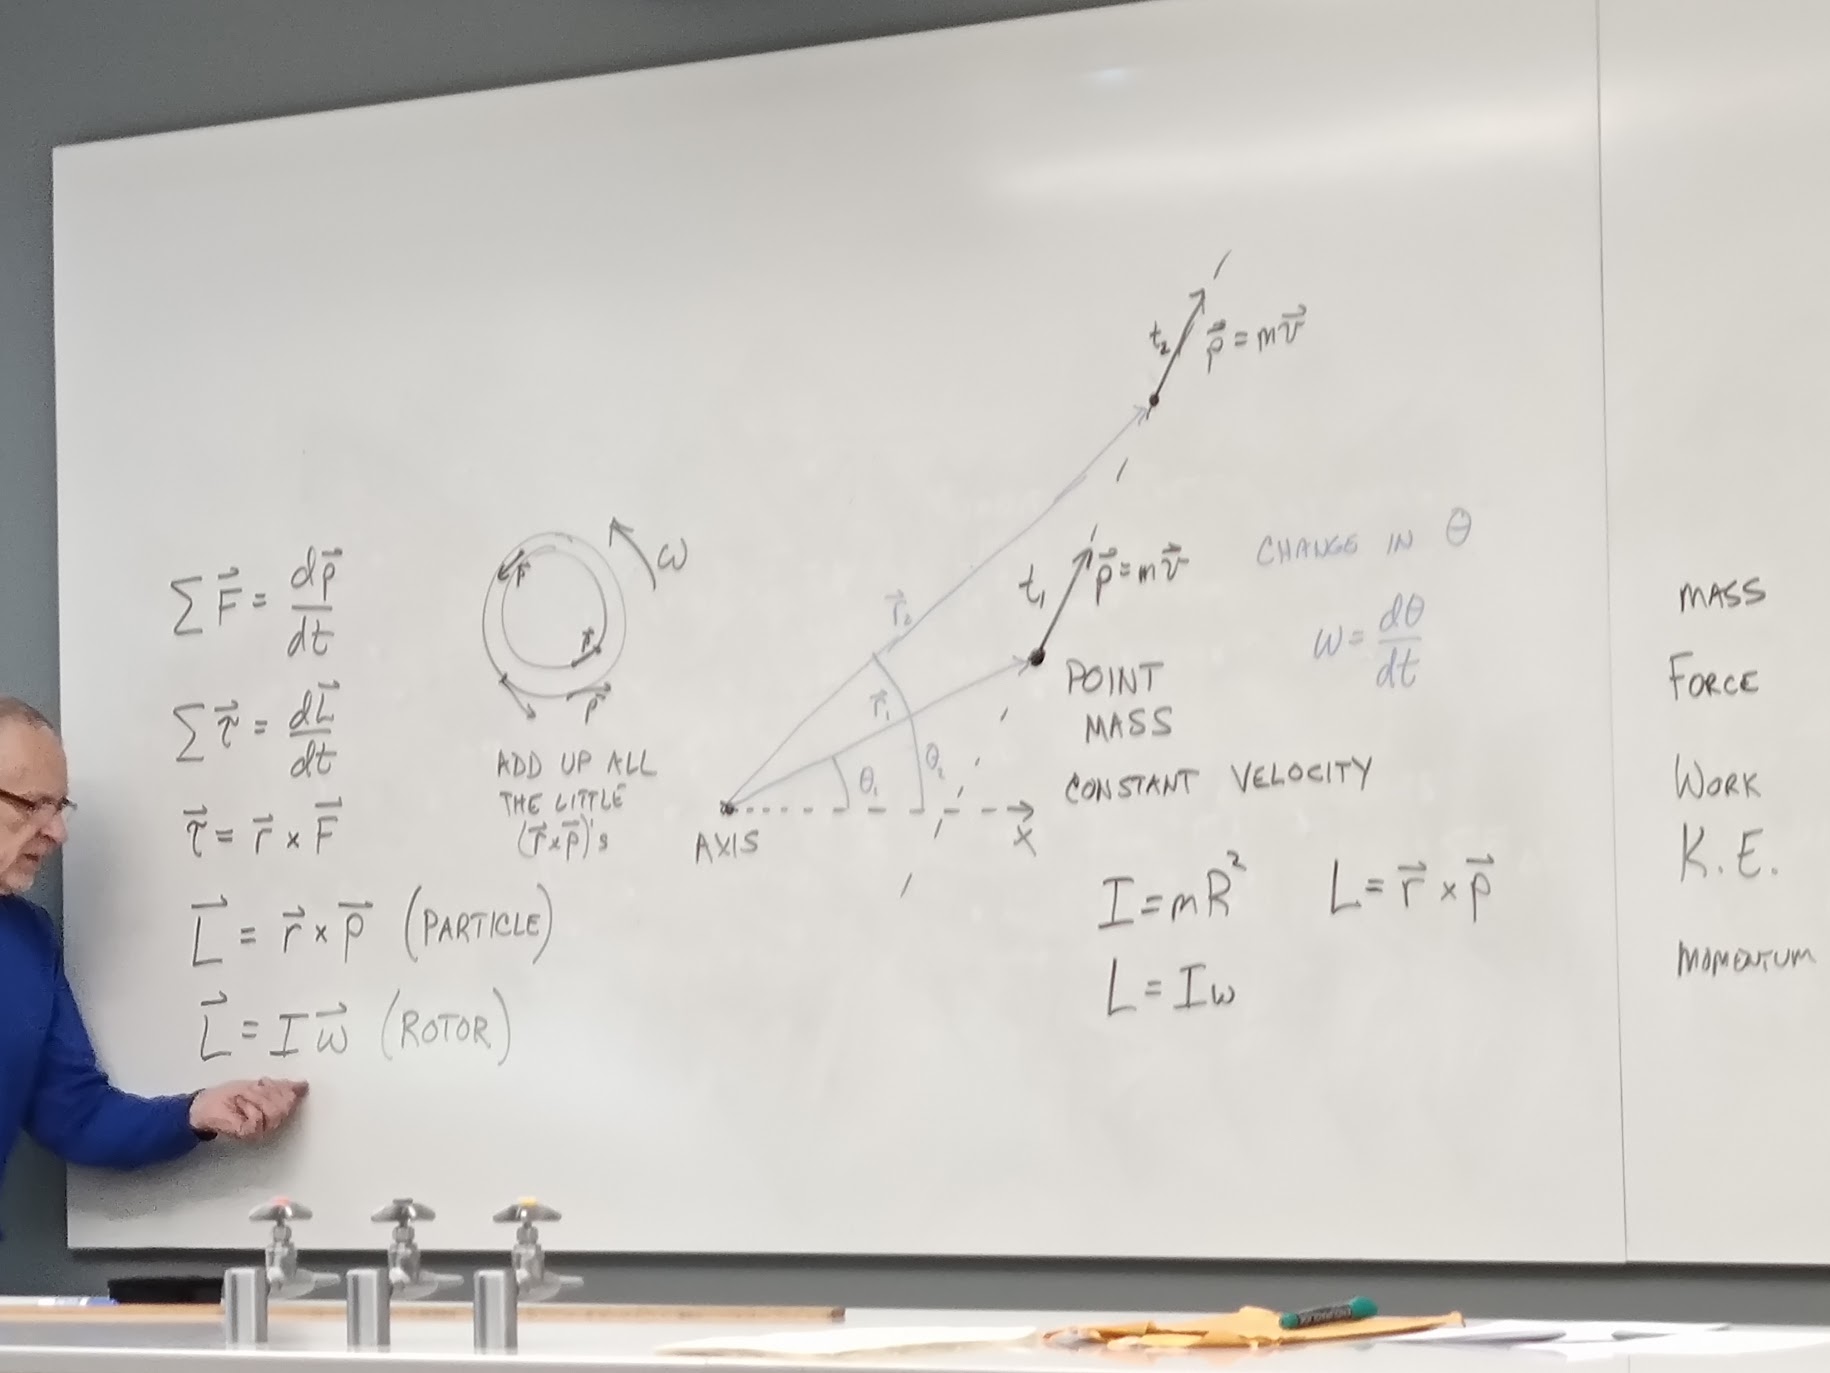 ∑F⃗ = dp⃗/dt
∑τ⃗ = dL⃗/dt
τ⃗ = r⃗ × F⃗
L⃗ = r⃗ × p⃗ (PARTICLE)
L⃗ = I ω⃗ (ROTOR)
ω
F
p⃗
ADD UP ALL
THE LITTLE
(r⃗×p⃗)'s
t₂ p⃗ = mv⃗
t₁ p⃗ = mv⃗
r⃗₂
r⃗₁
θ₁
θ₂
AXIS
X
POINT
MASS
CONSTANT VELOCITY
CHANGE IN θ
ω = dθ/dt
I = mR² L = r⃗ × p⃗
L = Iω
MASS
FORCE
WORK
K.E.
MOMENTUM